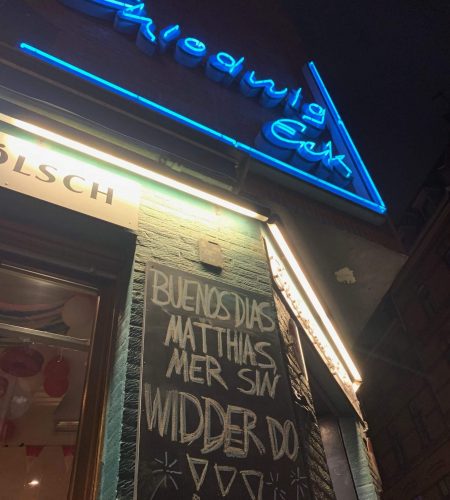 Chlodwig
Eck
ÖLSCH
BUENOS DIAS
MATTHIAS,
MER SIN
WIDDER DO